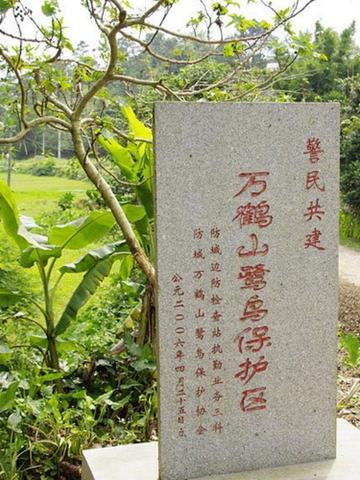 警民共建
万鹤山鹭鸟保护区
防城边防检查站执勤业务三科
防城万鹤山鹭鸟保护协会
公元二00六年四月二十五日立